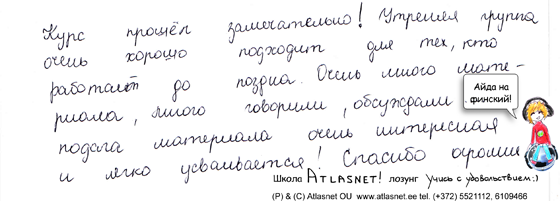 Курс прошёл замечательно! Утренняя группа
очень хорошо подходит для тех, кто
работает до поздна. Очень много мате-
риала, много говорили, обсуждали
Айда на
финский!
подача материала очень интересная
и легко усваивается! Спасибо огромн
Школа ATLASNET! лозунг Учись с удовольствием:)
(P) & (C) Atlasnet OU www.atlasnet.ee tel. (+372) 5521112, 6109466